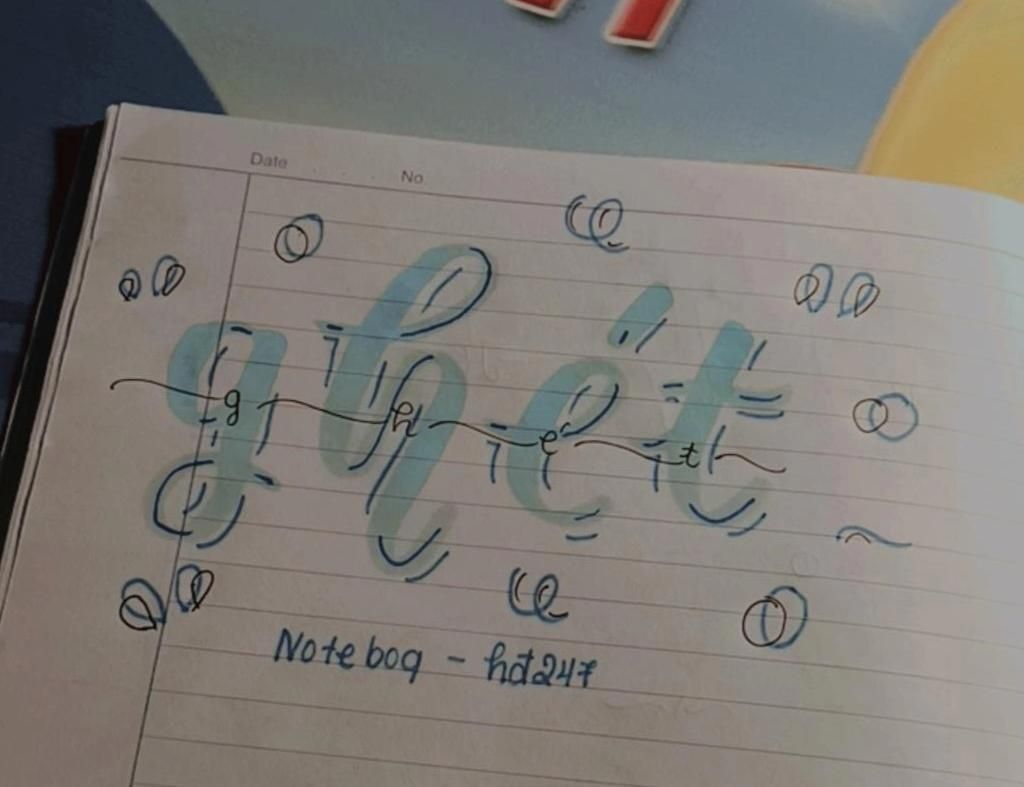 Date No.
ghét
g h é t
Noteboq - hdt247